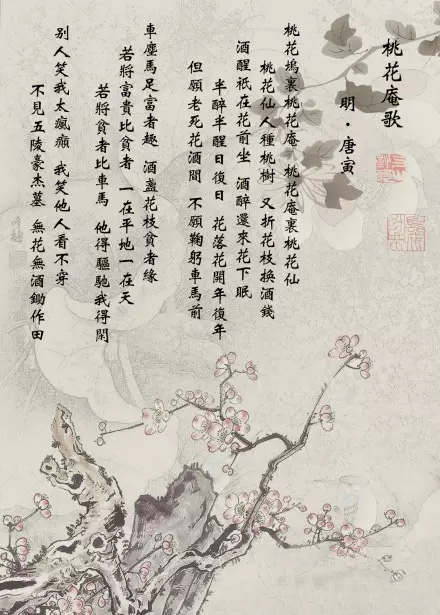 桃花庵歌
明·唐寅
桃花塢裏桃花庵 桃花庵裏桃花仙
桃花仙人種桃樹 又折花枝换酒錢
酒醒衹在花前坐 酒醉還來花下眠
半醉半醒日復日 花落花開年復年
但願老死花酒間 不願鞠躬車馬前
車塵馬足富者趣 酒盞花枝貧者緣
若將富貴比貧者 一在平地一在天
若將貧者比車馬 他得驅馳我得閑
别人笑我太瘋癲 我笑他人看不穿
不見五陵豪杰墓 無花無酒鋤作田